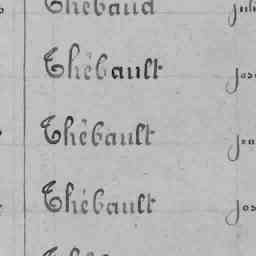 Thébaud juli
Thébault jose
Thébault jea
Thébault jos